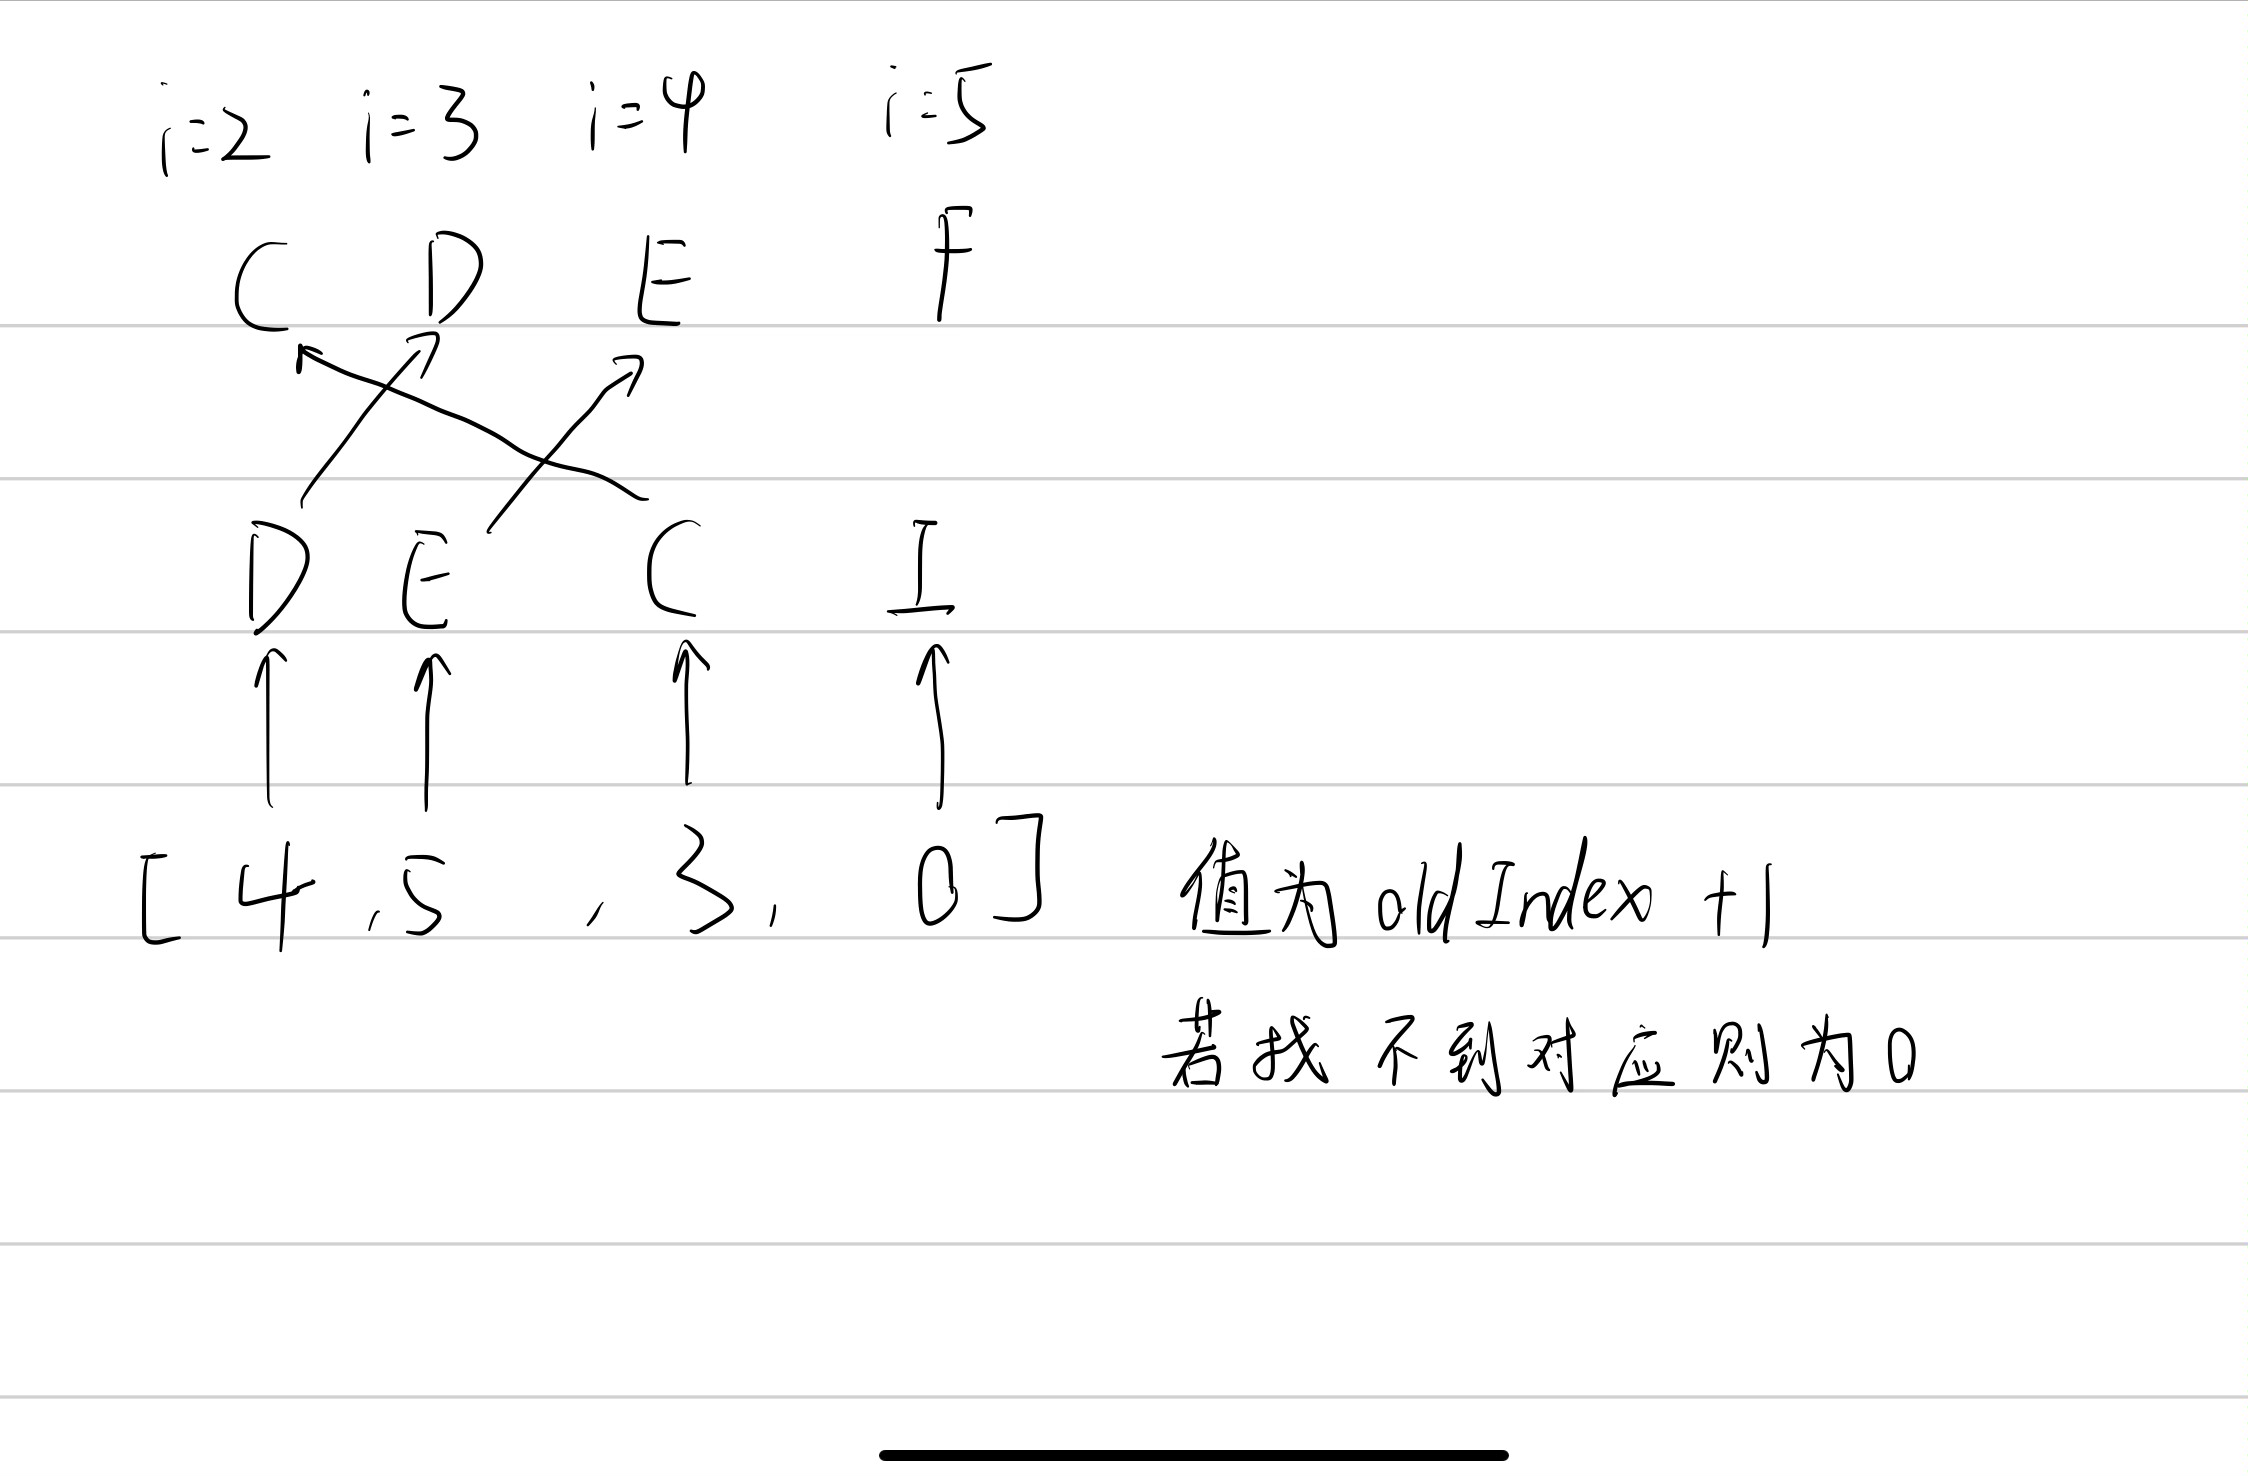 i=2 i=3 i=4 i=5
C D E F
D E C I
[4,5,3,0] 值为oldIndex+1
若找不到对应则为0